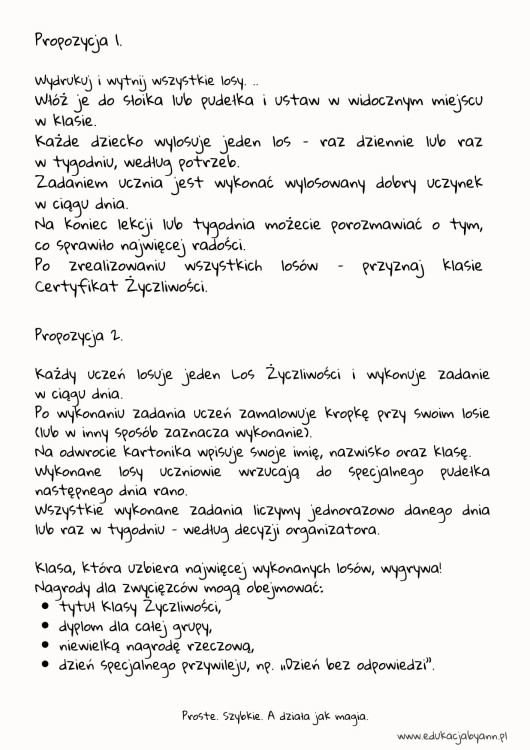 Propozycja 1.
Wydrukuj i wytnij wszystkie losy. ..
Włóż je do słoika lub pudełka i ustaw w widocznym miejscu
w klasie.
Każde dziecko wylosuje jeden los - raz dziennie lub raz
w tygodniu, według potrzeb.
Zadaniem ucznia jest wykonać wylosowany dobry uczynek
w ciągu dnia.
Na koniec lekcji lub tygodnia możecie porozmawiać o tym,
co sprawiło najwięcej radości.
Po zrealizowaniu wszystkich losów - przyznaj klasie
Certyfikat Życzliwości.
Propozycja 2.
Każdy uczeń losuje jeden Los Życzliwości i wykonuje zadanie
w ciągu dnia.
Po wykonaniu zadania uczeń zamalowuje kropkę przy swoim losie
(lub w inny sposób zaznacza wykonanie).
Na odwrocie kartonika wpisuje swoje imię, nazwisko oraz klasę.
Wykonane losy uczniowie wrzucają do specjalnego pudełka
następnego dnia rano.
Wszystkie wykonane zadania liczymy jednorazowo danego dnia
lub raz w tygodniu - według decyzji organizatora.
Klasa, która uzbiera najwięcej wykonanych losów, wygrywa!
Nagrody dla zwycięzców mogą obejmować:
• tytuł Klasy Życzliwości,
• dyplom dla całej grupy,
• niewielką nagrodę rzeczową,
• dzień specjalnego przywileju, np. „Dzień bez odpowiedzi”.
Proste. Szybkie. A działa jak magia.
www.edukacjabyann.pl